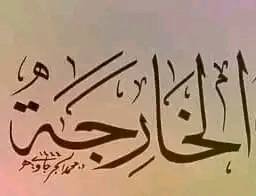 الخَارِجَةُ